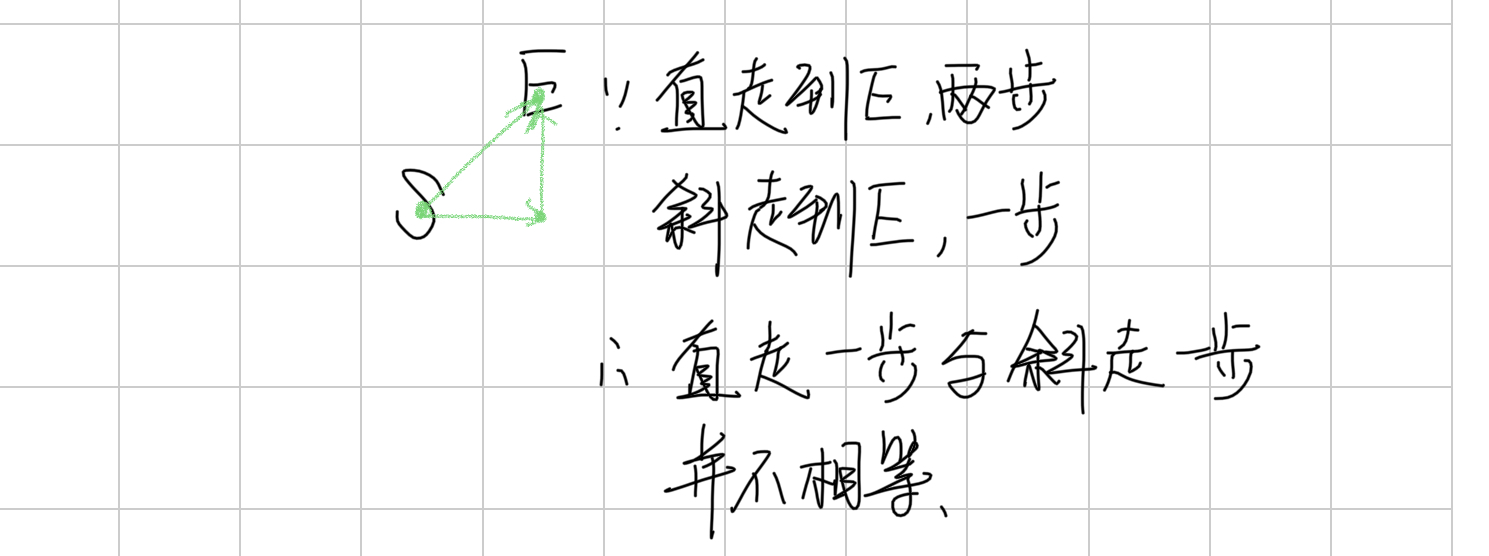 E ∵ 直走到E,两步
S 斜走到E,一步
∴ 直走一步与斜走一步
并不相等、